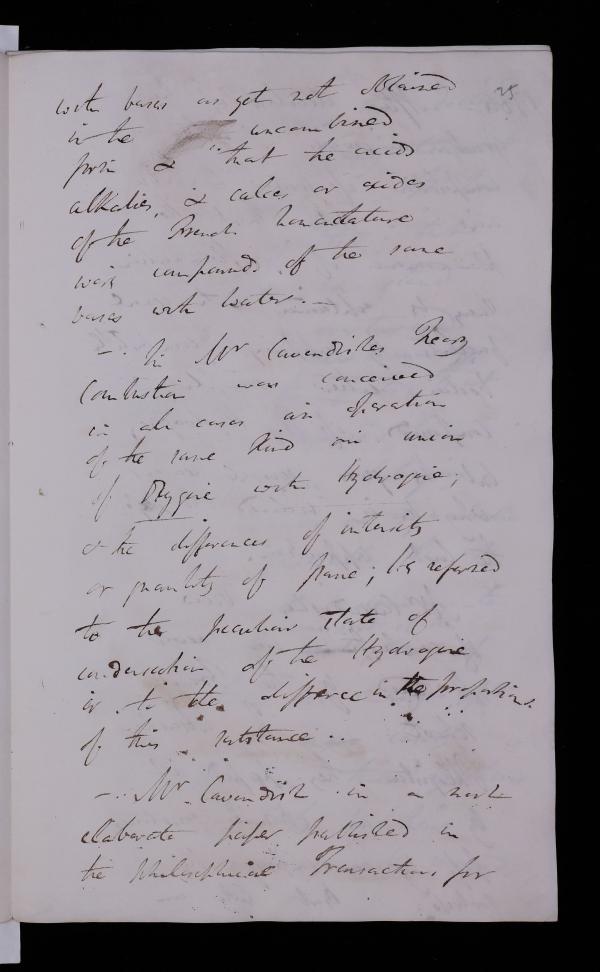 25
with bases as yet not obtained
in the uncombined
form & that the acids
alkalies, & calces or oxides
of the French Nomenclature
were compounds of the same
bases with water. —
— In Mr Cavendishes Theory
Combustion was conceived
in all cases an operation
of the same kind an union
of Oxygene with Hydrogene;
& the differences of intensity
or quantity of flame; he referred
to the peculiar state of
condensation of the Hydrogene
or to the difference in the proportions
of this substance..
— Mr Cavendish in a most
elaborate paper published in
the Philosophical Transactions for